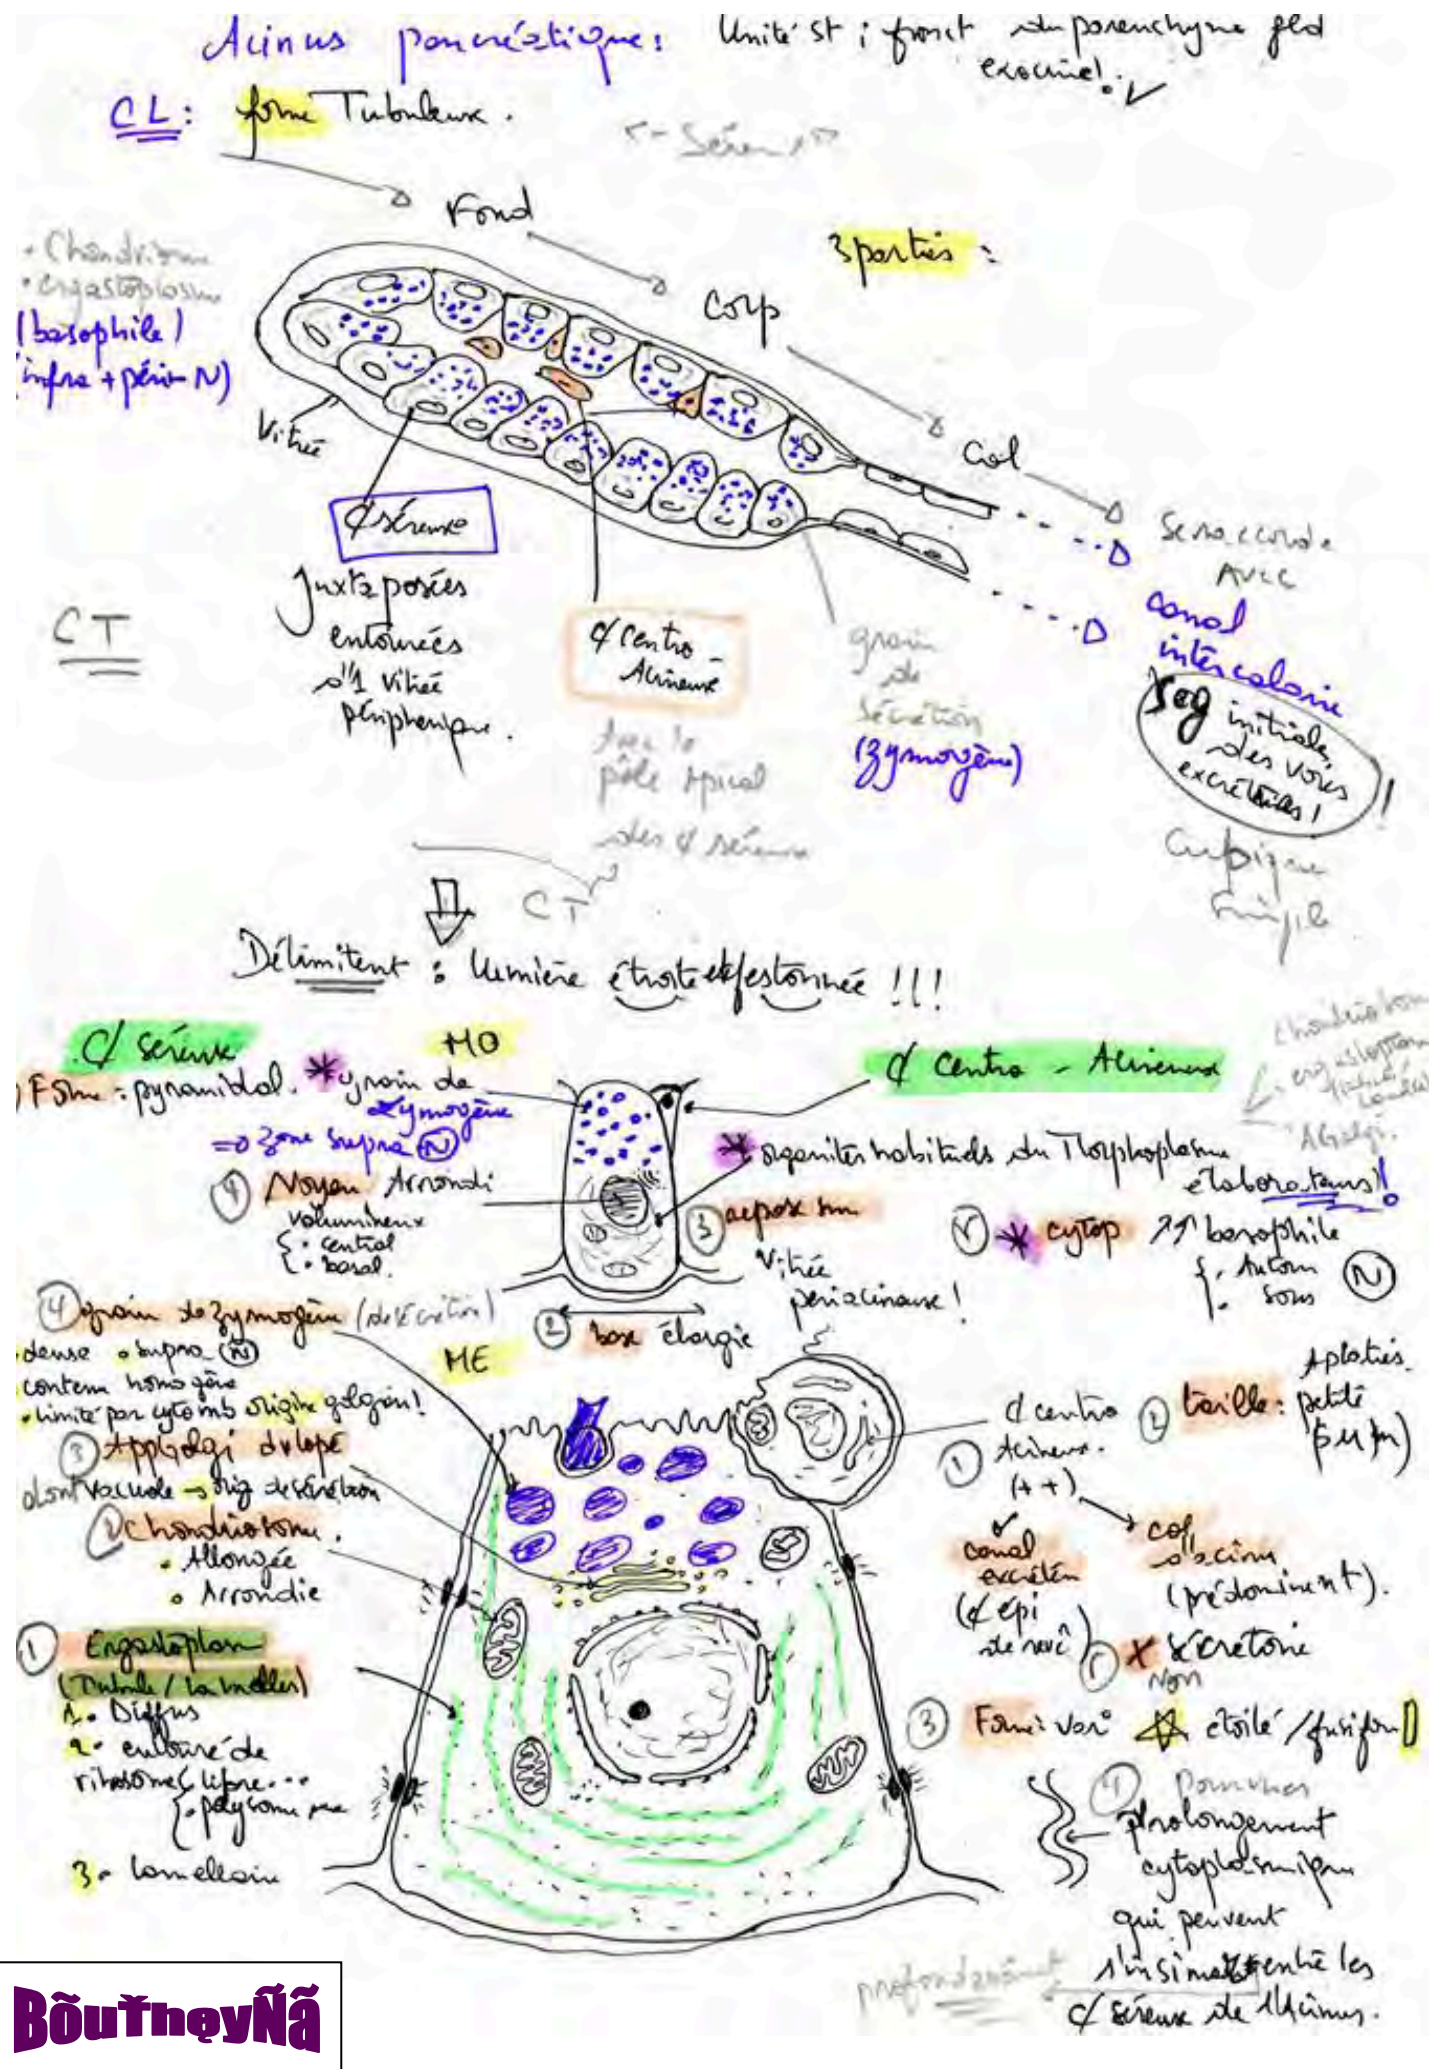 Acinus pancréatique: Unité St ; fonct du parenchyme gld
exocrine!
CL: forme Tubuleuse.
Fond
3 parties :
Corp
Col
• Chondriome
• ergastoplasme
(basophile)
infra + péri N)
Vitrée
¢ séreuse
Juxtaposées
entourées
d'1 vitrée
périphérique.
CT
¢ Centro -
Acineuse
Avec le
pôle apical
des ¢ séreuse
grain
de
sécrétion
(zymogène)
Se raccorde
AVEC
canal
intercalaire
Seg initiale
des voies
excrétrices !
CT
Délimitent : lumière étroite et festonnée !!!
¢ séreuse
MO
¢ Centro - Acineuse
Forme : pyramidal.
* grain de
zymogène
=> zone supra N
chondriotome
ergastoplasme
AGolgi.
* organites habituels du Morphoplasme
élaborateurs!
4 Noyau Arrondi
volumineux
• central
• basal.
3
5 * cytop ↗↗ basophile
Autour
sous
N
Vitrée
périacineuse !
2 base élargie
4 grain de zymogène (de sécrétion)
ME
dense • supra N
contenu homogène
• limité par cytomb origine golgien!
3 App Golgi dvlopé
dont vacuole → orig de sécrétion
2 Chondriotome.
• Allongée
• Arrondie
1 Ergastoplasm
(Tubule / lamelles)
1. Diffus
2. entouré de
ribosome libre...
polysome
3. lamellaire
1 ¢ centro
Acineux.
(++)
2 taille : petite
Aplaties.
canal
excréteur
(¢ épi
de revê)
col
d'acinu
(prédominent).
5 X sécrétoire
Non
3 Forme: var° étoilé / fusiform
4 Pourvues
prolongement
cytoplasmique
qui peuvent
s'insinuer entre les
profondément
¢ séreuse de l'Acinus.
BõuŤheyÑã